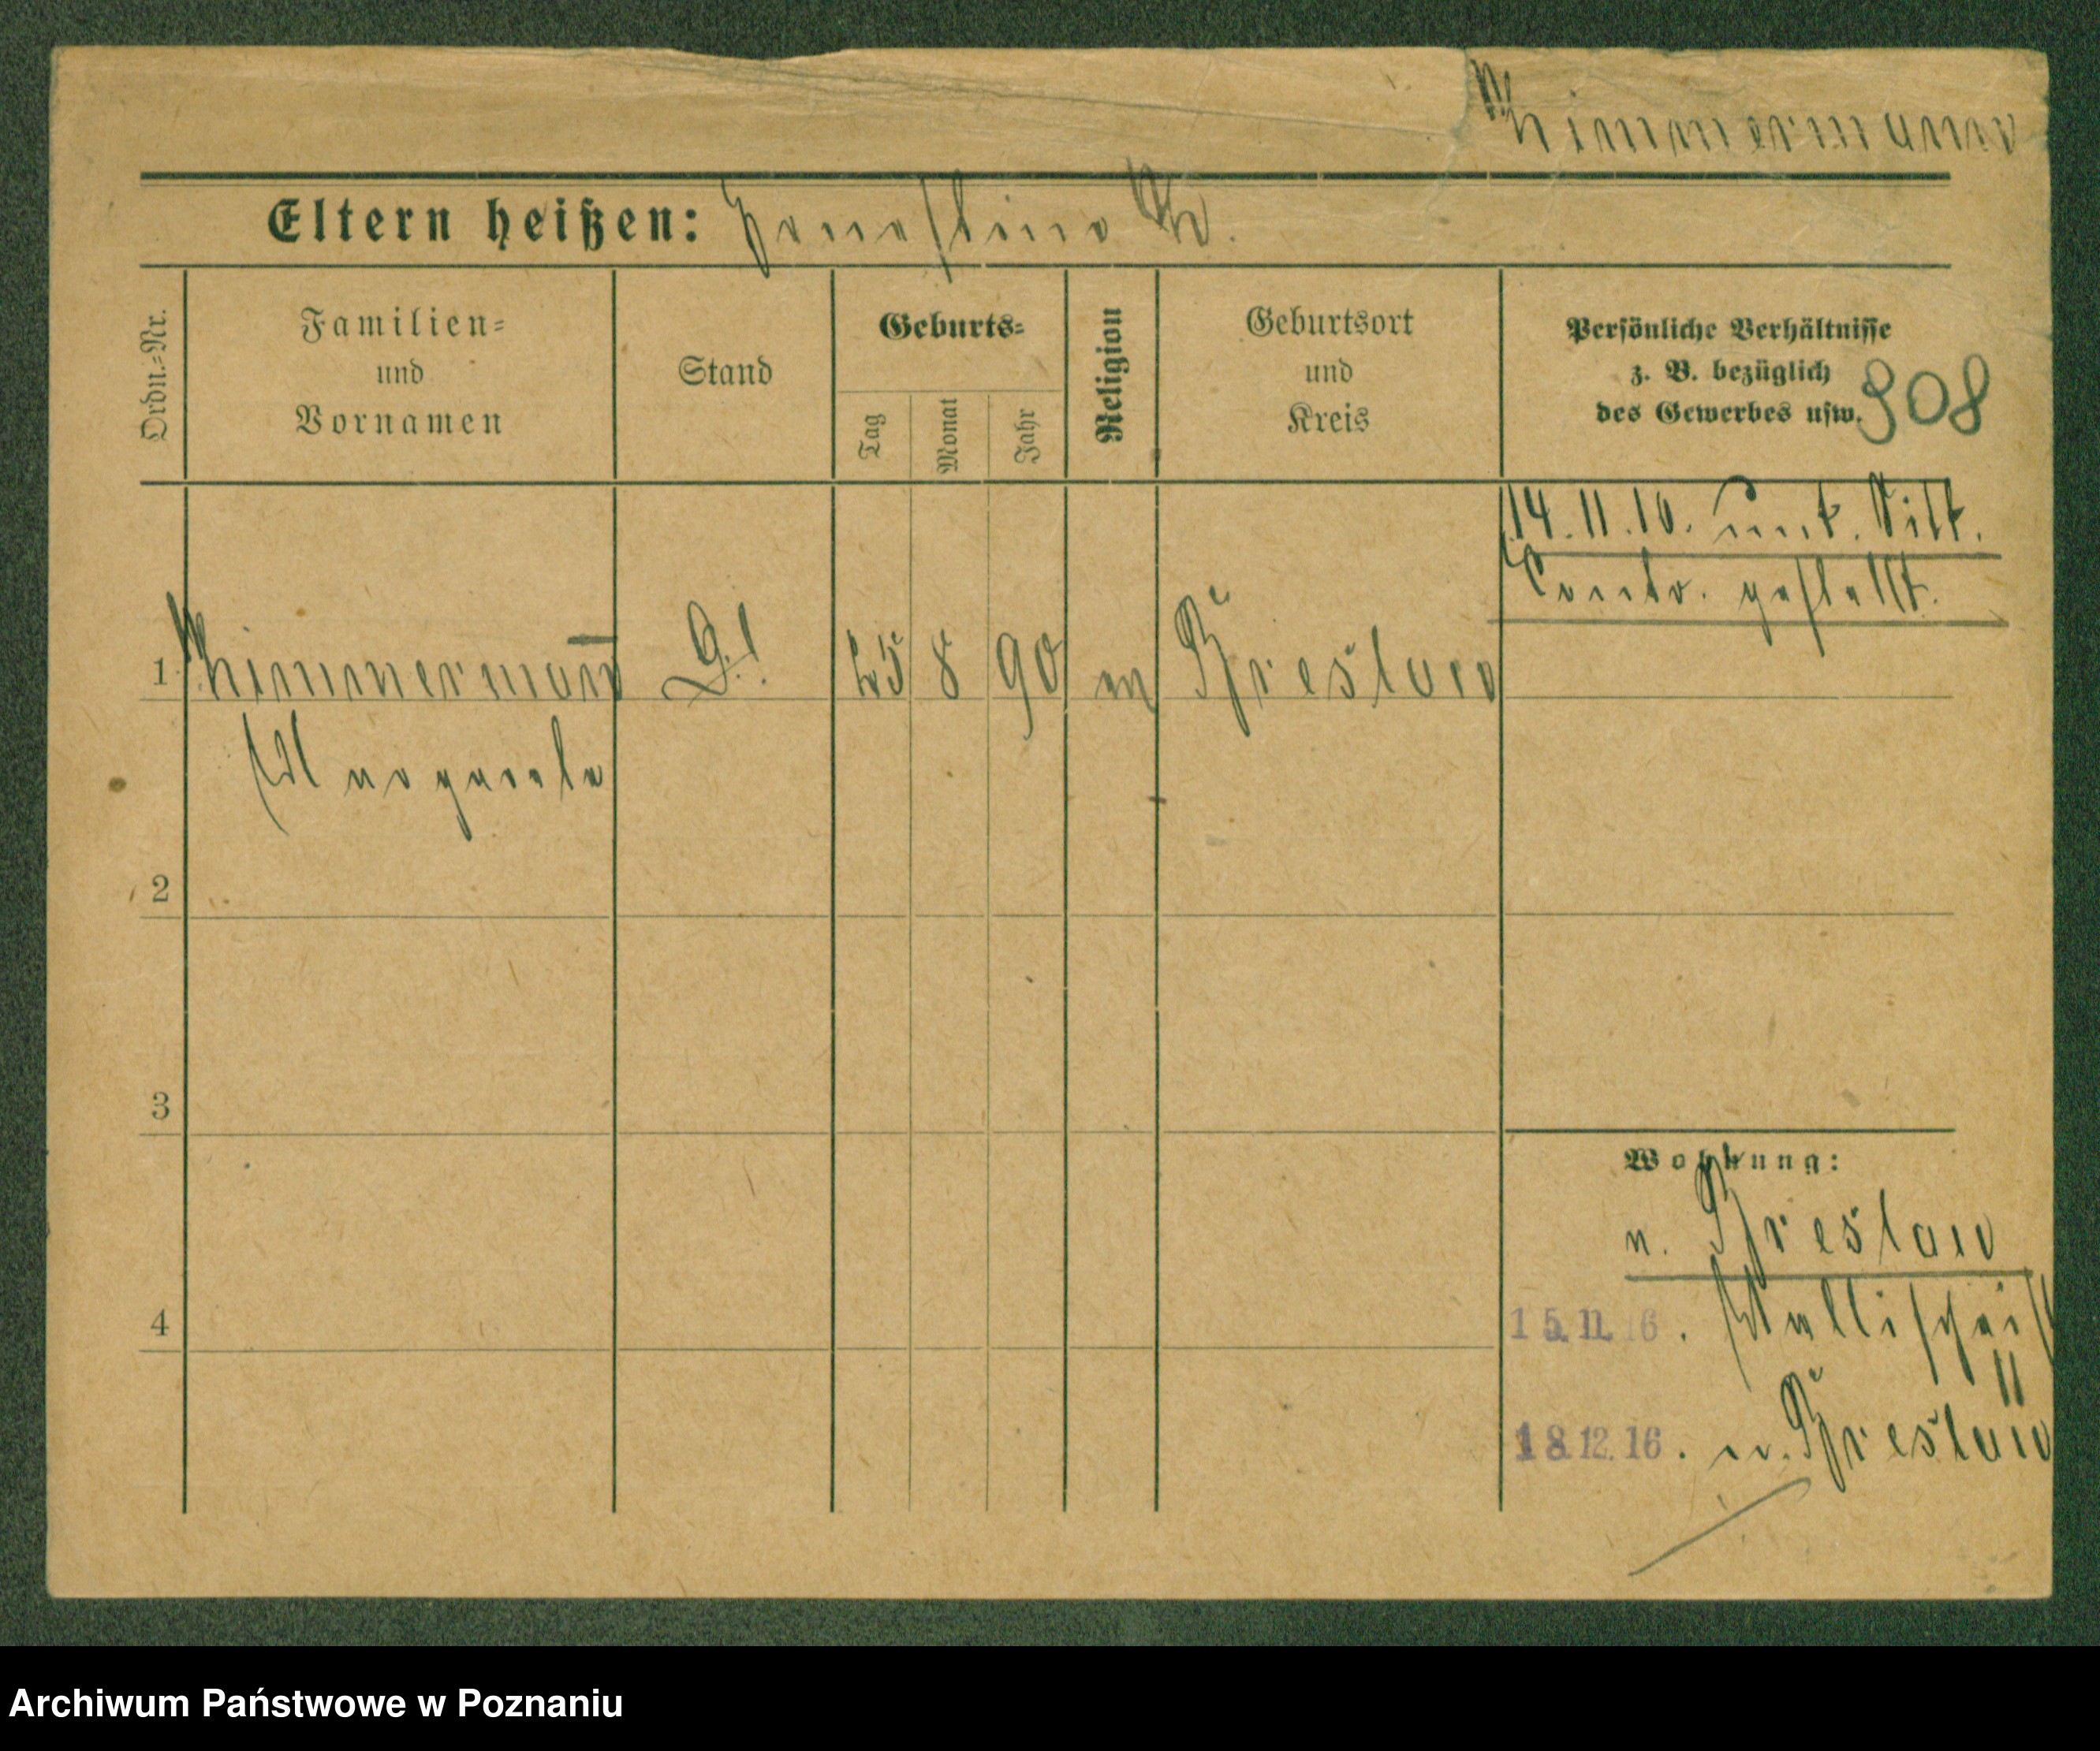 Zimmermann
Eltern heißen: Ernestine Z.
Ordn.=Nr.
Familien=
und
Vornamen
Stand
Geburts=
Tag
Monat
Jahr
Religion
Geburtsort
und
Kreis
Persönliche Verhältnisse
z. B. bezüglich
des Gewerbes usw.
308
14.11.16. unt. Sitt.
Contr. gestellt.
1 Zimmermann 25 8 90 Breslau
Margarete
2
3
4
Wohnung:
n. Breslau
15.11.16.
18.12.16. n. Breslau
Archiwum Państwowe w Poznaniu